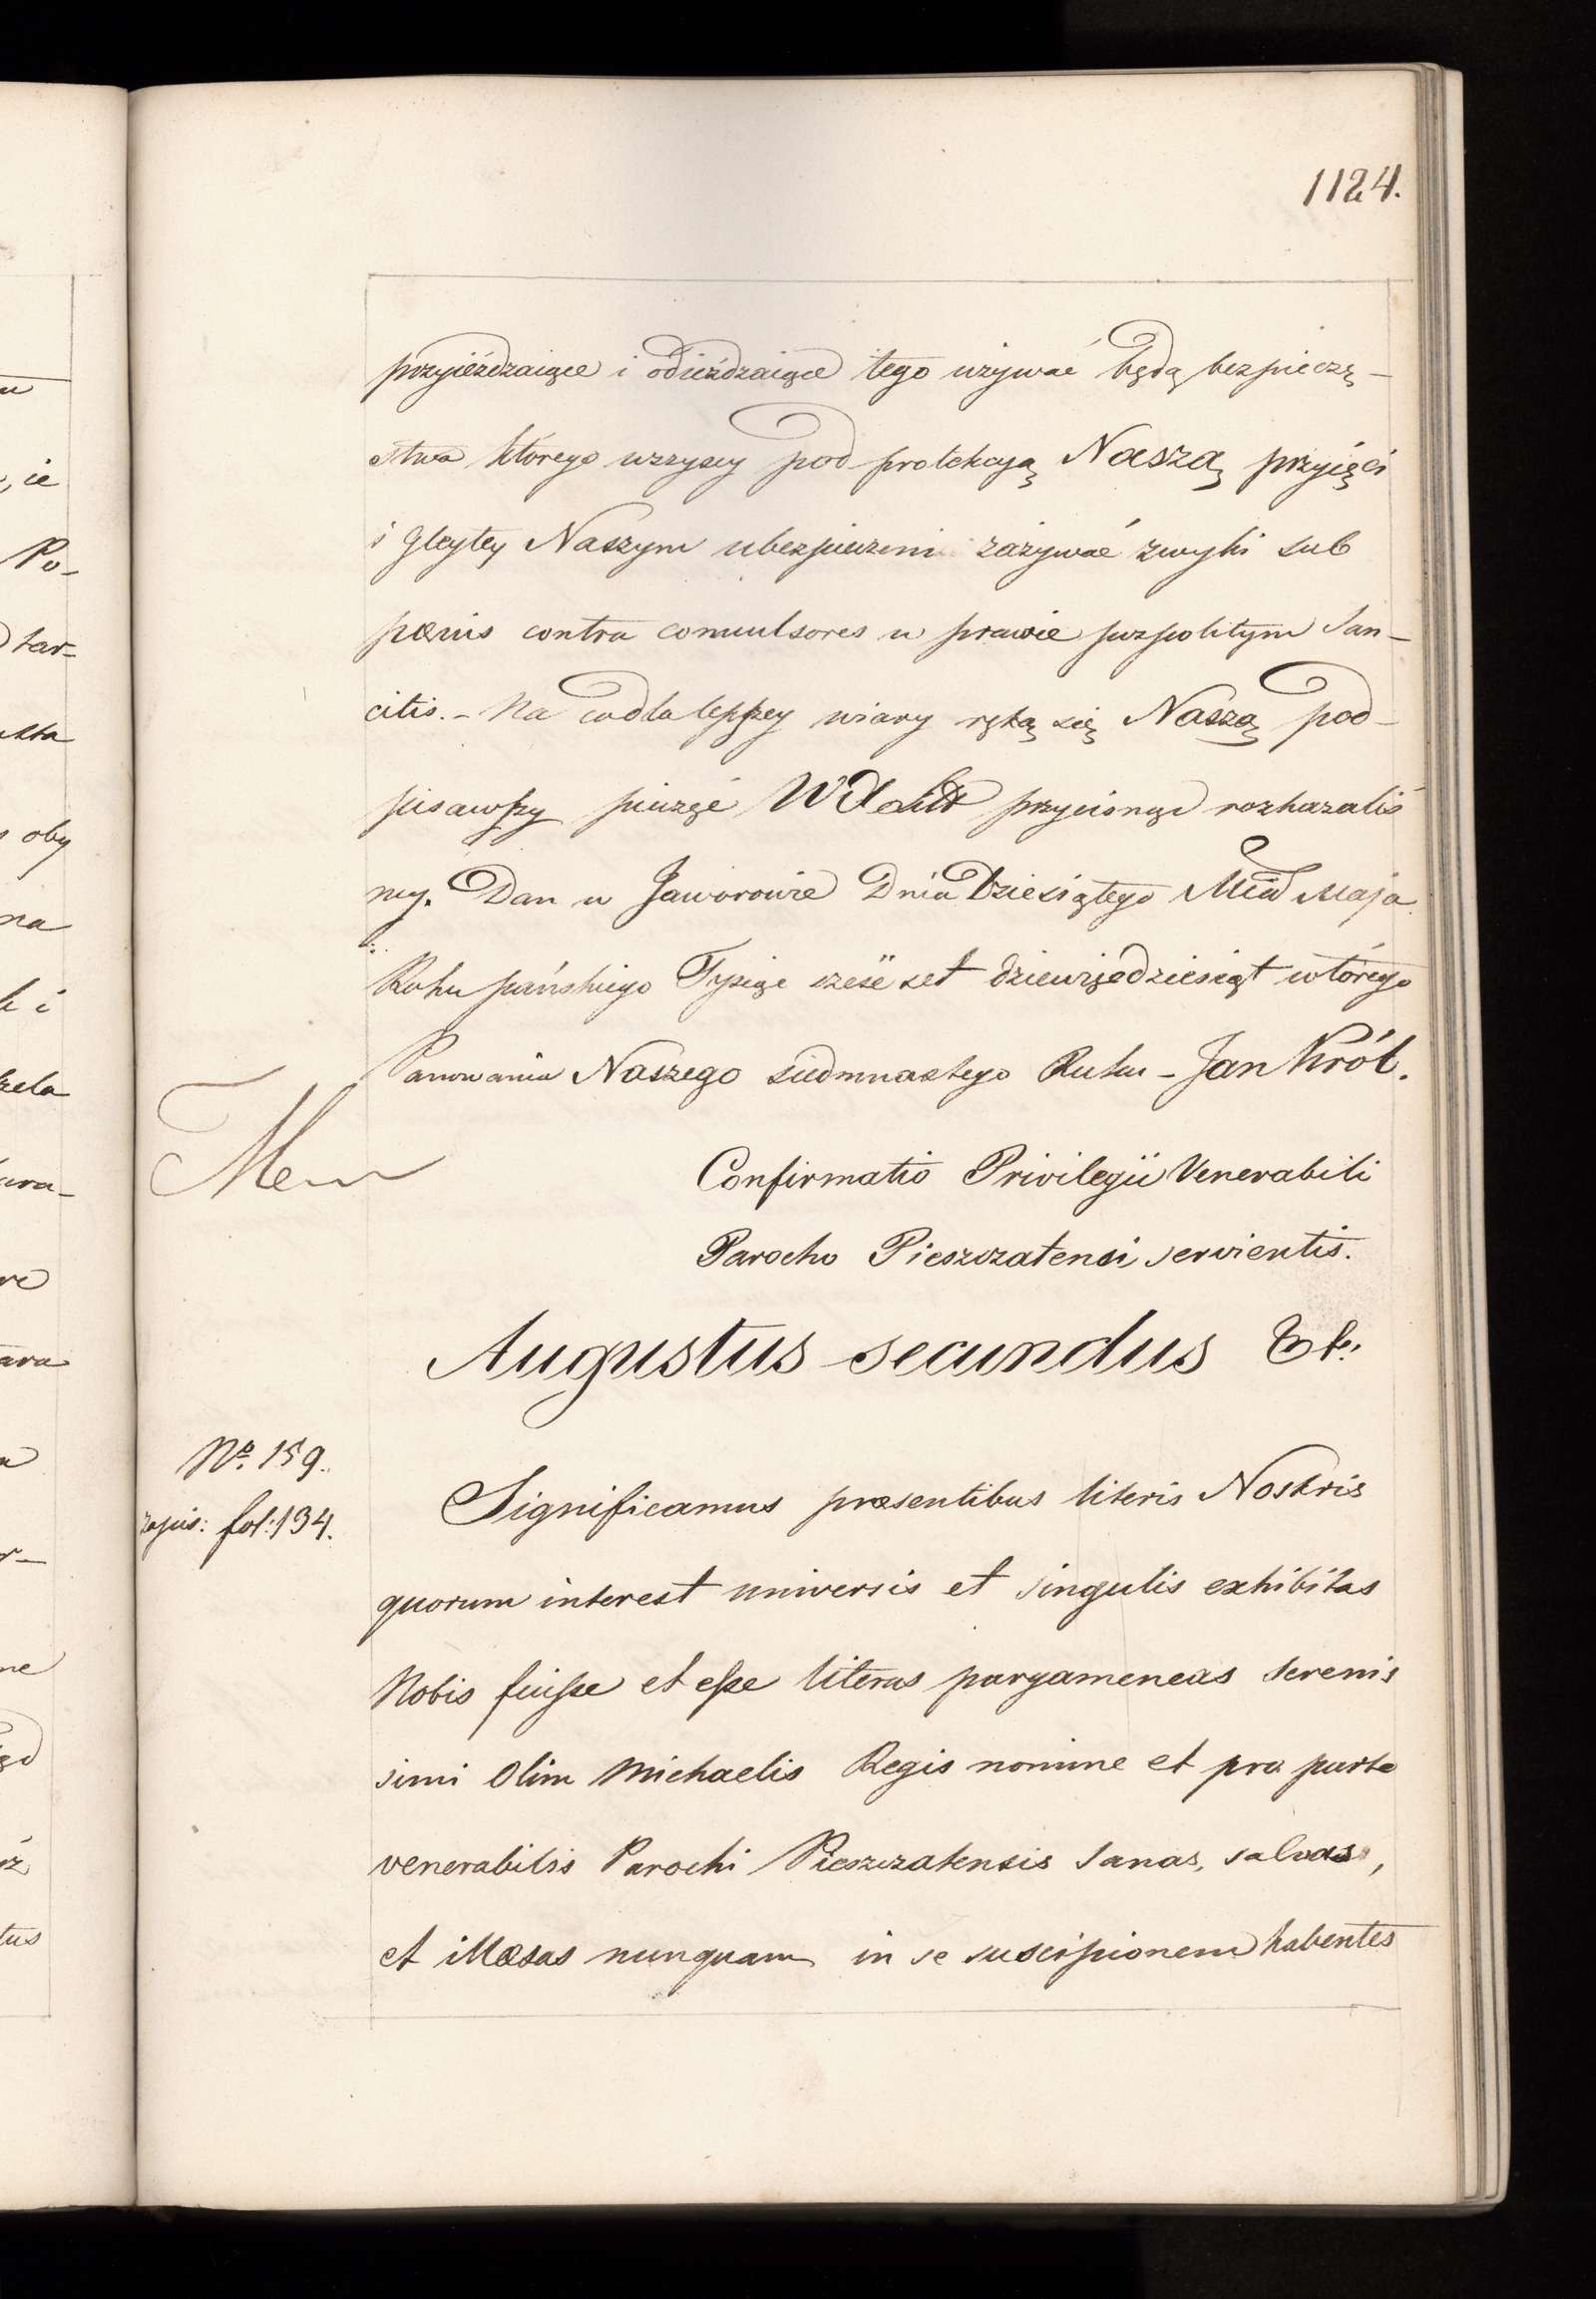 1124.
przyieżdzaiące i odieżdzaiące tego używać będą bezpieczę-
stwa którego wszyscy pod protekcyą Naszą przyięci
i gleytey Naszym ubezpieczeni zażywać zwykli sub
pœnis contra convulsores w prawie pospolitym San-
citis. - Na co dla lepszey wiary ręką się Naszą pod-
pisawszy pieczęć W X Litt przycisnąć rozkazaliś
my. Dan w Jaworowie Dnia Dziesiątego Mca Maja
Roku pańskiego Tysiąc sześć set dziewięćdziesiąt wtórego
Panowania Naszego siedmnastego Roku - Jan Król.
Confirmatio Privilegii Venerabili
Parocho Pieszczatensi servientis.
Augustus secundus &c.
No. 159.
zapis: fol: 134.
Significamus præsentibus literis Nostris
quorum interest universis et singulis exhibitas
Nobis fuisse et esse literas pargameneas Serenis
simi Olim Michaelis Regis nomine et pro parte
venerabilis Parochi Pieszczatensis Sanas, salvas,
et illæsas nunquam in se suscipionem habentes